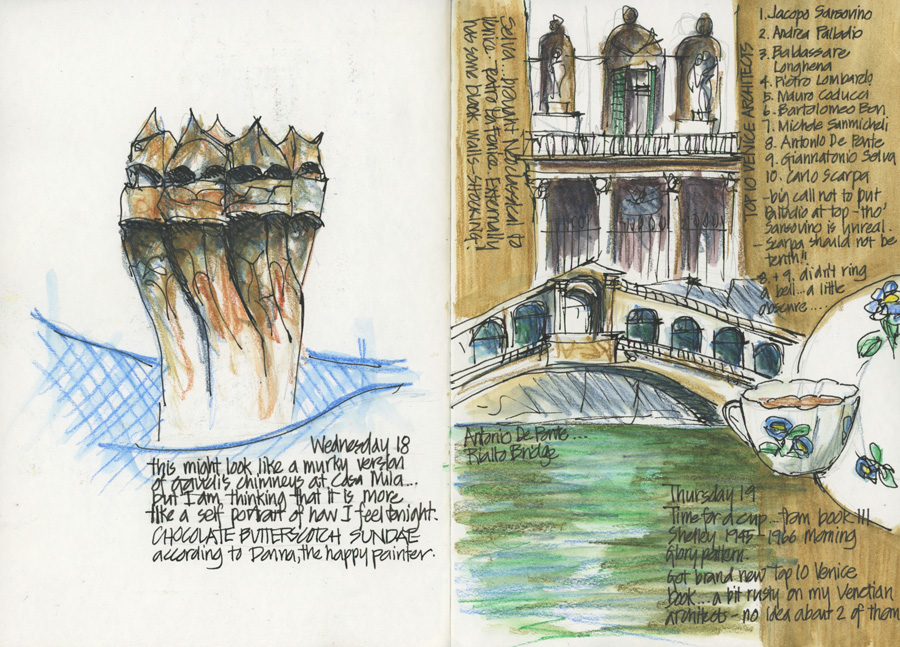 Wednesday 18
this might look like a murky version
of gavelis chimneys at Casa Mila...
but I am thinking that it is more
like a self portrait of how I feel tonight.
CHOCOLATE BUTTERSCOTCH SUNDAE
according to Donna, the happy painter.
Selva brought Neoclassical to
Venice. Teatro La Fenice. Externally
has some blank walls - SHOCKING!
TOP 10 VENICE ARCHITECTS
1. Jacopo Sansovino
2. Andrea Palladio
3. Baldassare
Longhena
4. Pietro Lombardo
5. Mauro Coducci
6. Bartolomeo Bon
7. Michele Sanmicheli
8. Antonio De Ponte
9. Giannatonio Selva
10. Carlo Scarpa
- big call not to put
Palladio at top - tho'
Sansovino is unreal.
- Scarpa should not be
tenth!!
- 8 + 9. didn't ring
a bell... a little
obscure...
Antonio De Ponte...
Rialto Bridge
Thursday 19
Time for a cup... from book !!!
Shelley 1945 - 1966 Morning
Glory pattern.
Got brand new Top 10 Venice
book... a bit rusty on my Venetian
architects - no idea about 2 of them